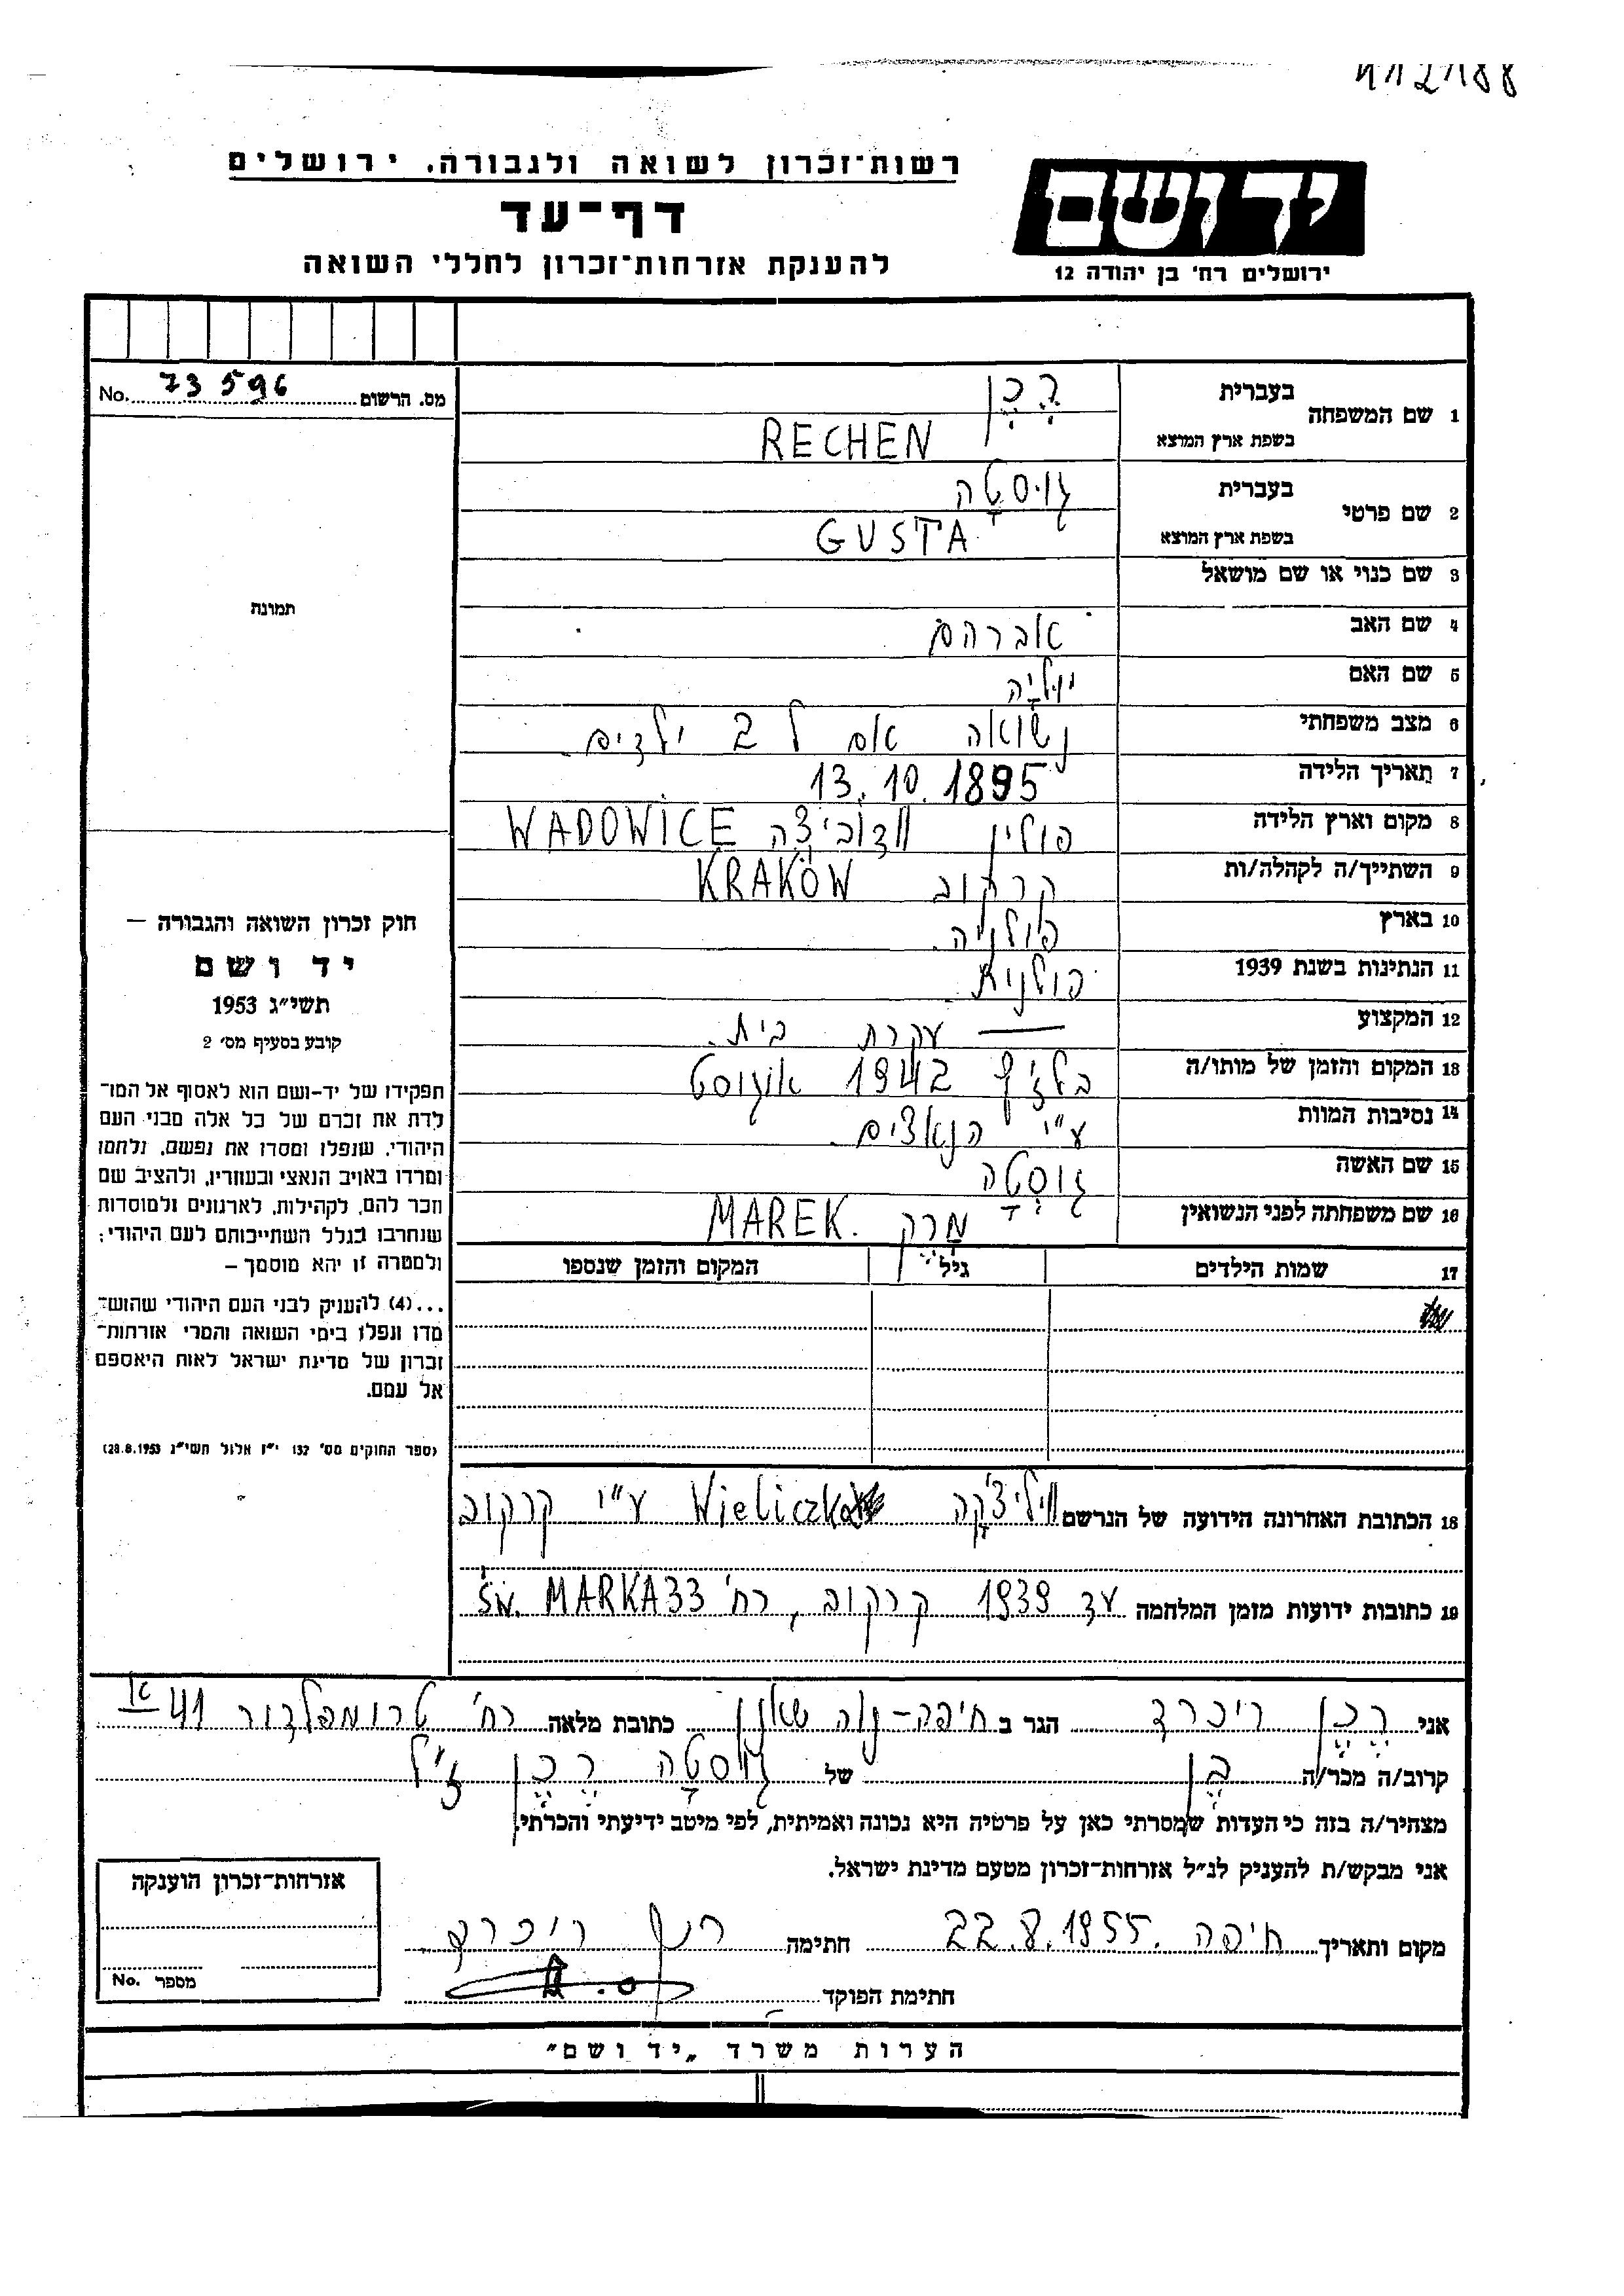 רשות־זכרון לשואה ולגבורה. ירושלים
דף־עד
להענקת אזרחות־זכרון לחללי השואה
יד ושם
ירושלים רח' בן יהודה 12
מס. הרשום 73596 No.
תמונה
חוק זכרון השואה והגבורה –
יד ושם
תשי״ג 1953
קובע בסעיף מס׳ 2
תפקידו של יד-ושם הוא לאסוף אל המו־
לדת את זכרם של כל אלה מבני העם
היהודי, שנפלו ומסרו את נפשם, נלחמו
ומרדו באויב הנאצי ובעוזריו, ולהציב שם
וזכר להם, לקהילות, לארגונים ולמוסדות
שנחרבו בגלל השתייכותם לעם היהודי;
ולמטרה זו יהא מוסמך –
...(4) להעניק לבני העם היהודי שהוש־
מדו ונפלו בימי השואה והמרי אזרחות־
זכרון של מדינת ישראל לאות היאספם
אל עמם.
(ספר החוקים מס׳ 132 י״ז אלול תשי״ג 28.8.1953)
1 שם המשפחה
בעברית רֶכֶן
בשפת ארץ המוצא RECHEN
2 שם פרטי
בעברית גוסטָה
בשפת ארץ המוצא GUSTA
3 שם כנוי או שם מושאל
4 שם האב אברהם
5 שם האם יוליה
6 מצב משפחתי נשואה אם ל 2 ילדים.
7 תאריך הלידה 13.10.1895
8 מקום וארץ הלידה פולין וודוביצה WADOWICE
9 השתייך/ה לקהלה/ות קרקוב KRAKÓW
10 בארץ פולניה.
11 הנתינות בשנת 1939 פולנית.
12 המקצוע — עקרת בית.
13 המקום והזמן של מותו/ה בלז'ץ 1942 אוגוסט
14 נסיבות המוות ע״י הנאצים.
15 שם האשה גוסטָה
16 שם משפחתה לפני הנשואין מרק MAREK.
17 שמות הילדים גיל המקום והזמן שנספו
18 הכתובת האחרונה הידועה של הנרשם ווליצ'קה Wieliczka ע״י קרקוב
19 כתובות ידועות מזמן המלחמה עד 1939 קרקוב, רח' Św. MARKA 33
אני רֶכֶן ריכרד הגר ב חיפה-נוה שאנן כתובת מלאה רח' טרומפלדור 41א
קרוב/ה מכר/ה בֵן של גוסטָה רֶכֶן ז״ל
מצהיר/ה בזה כי העדות שמסרתי כאן על פרטיה היא נכונה ואמיתית, לפי מיטב ידיעתי והכרתי.
אני מבקש/ת להעניק לנ״ל אזרחות-זכרון מטעם מדינת ישראל.
מקום ותאריך חיפה 22.8.1955. חתימה רכן ריכרד.
חתימת הפוקד
אזרחות-זכרון הוענקה
מספר No.
הערות משרד „יד ושם״